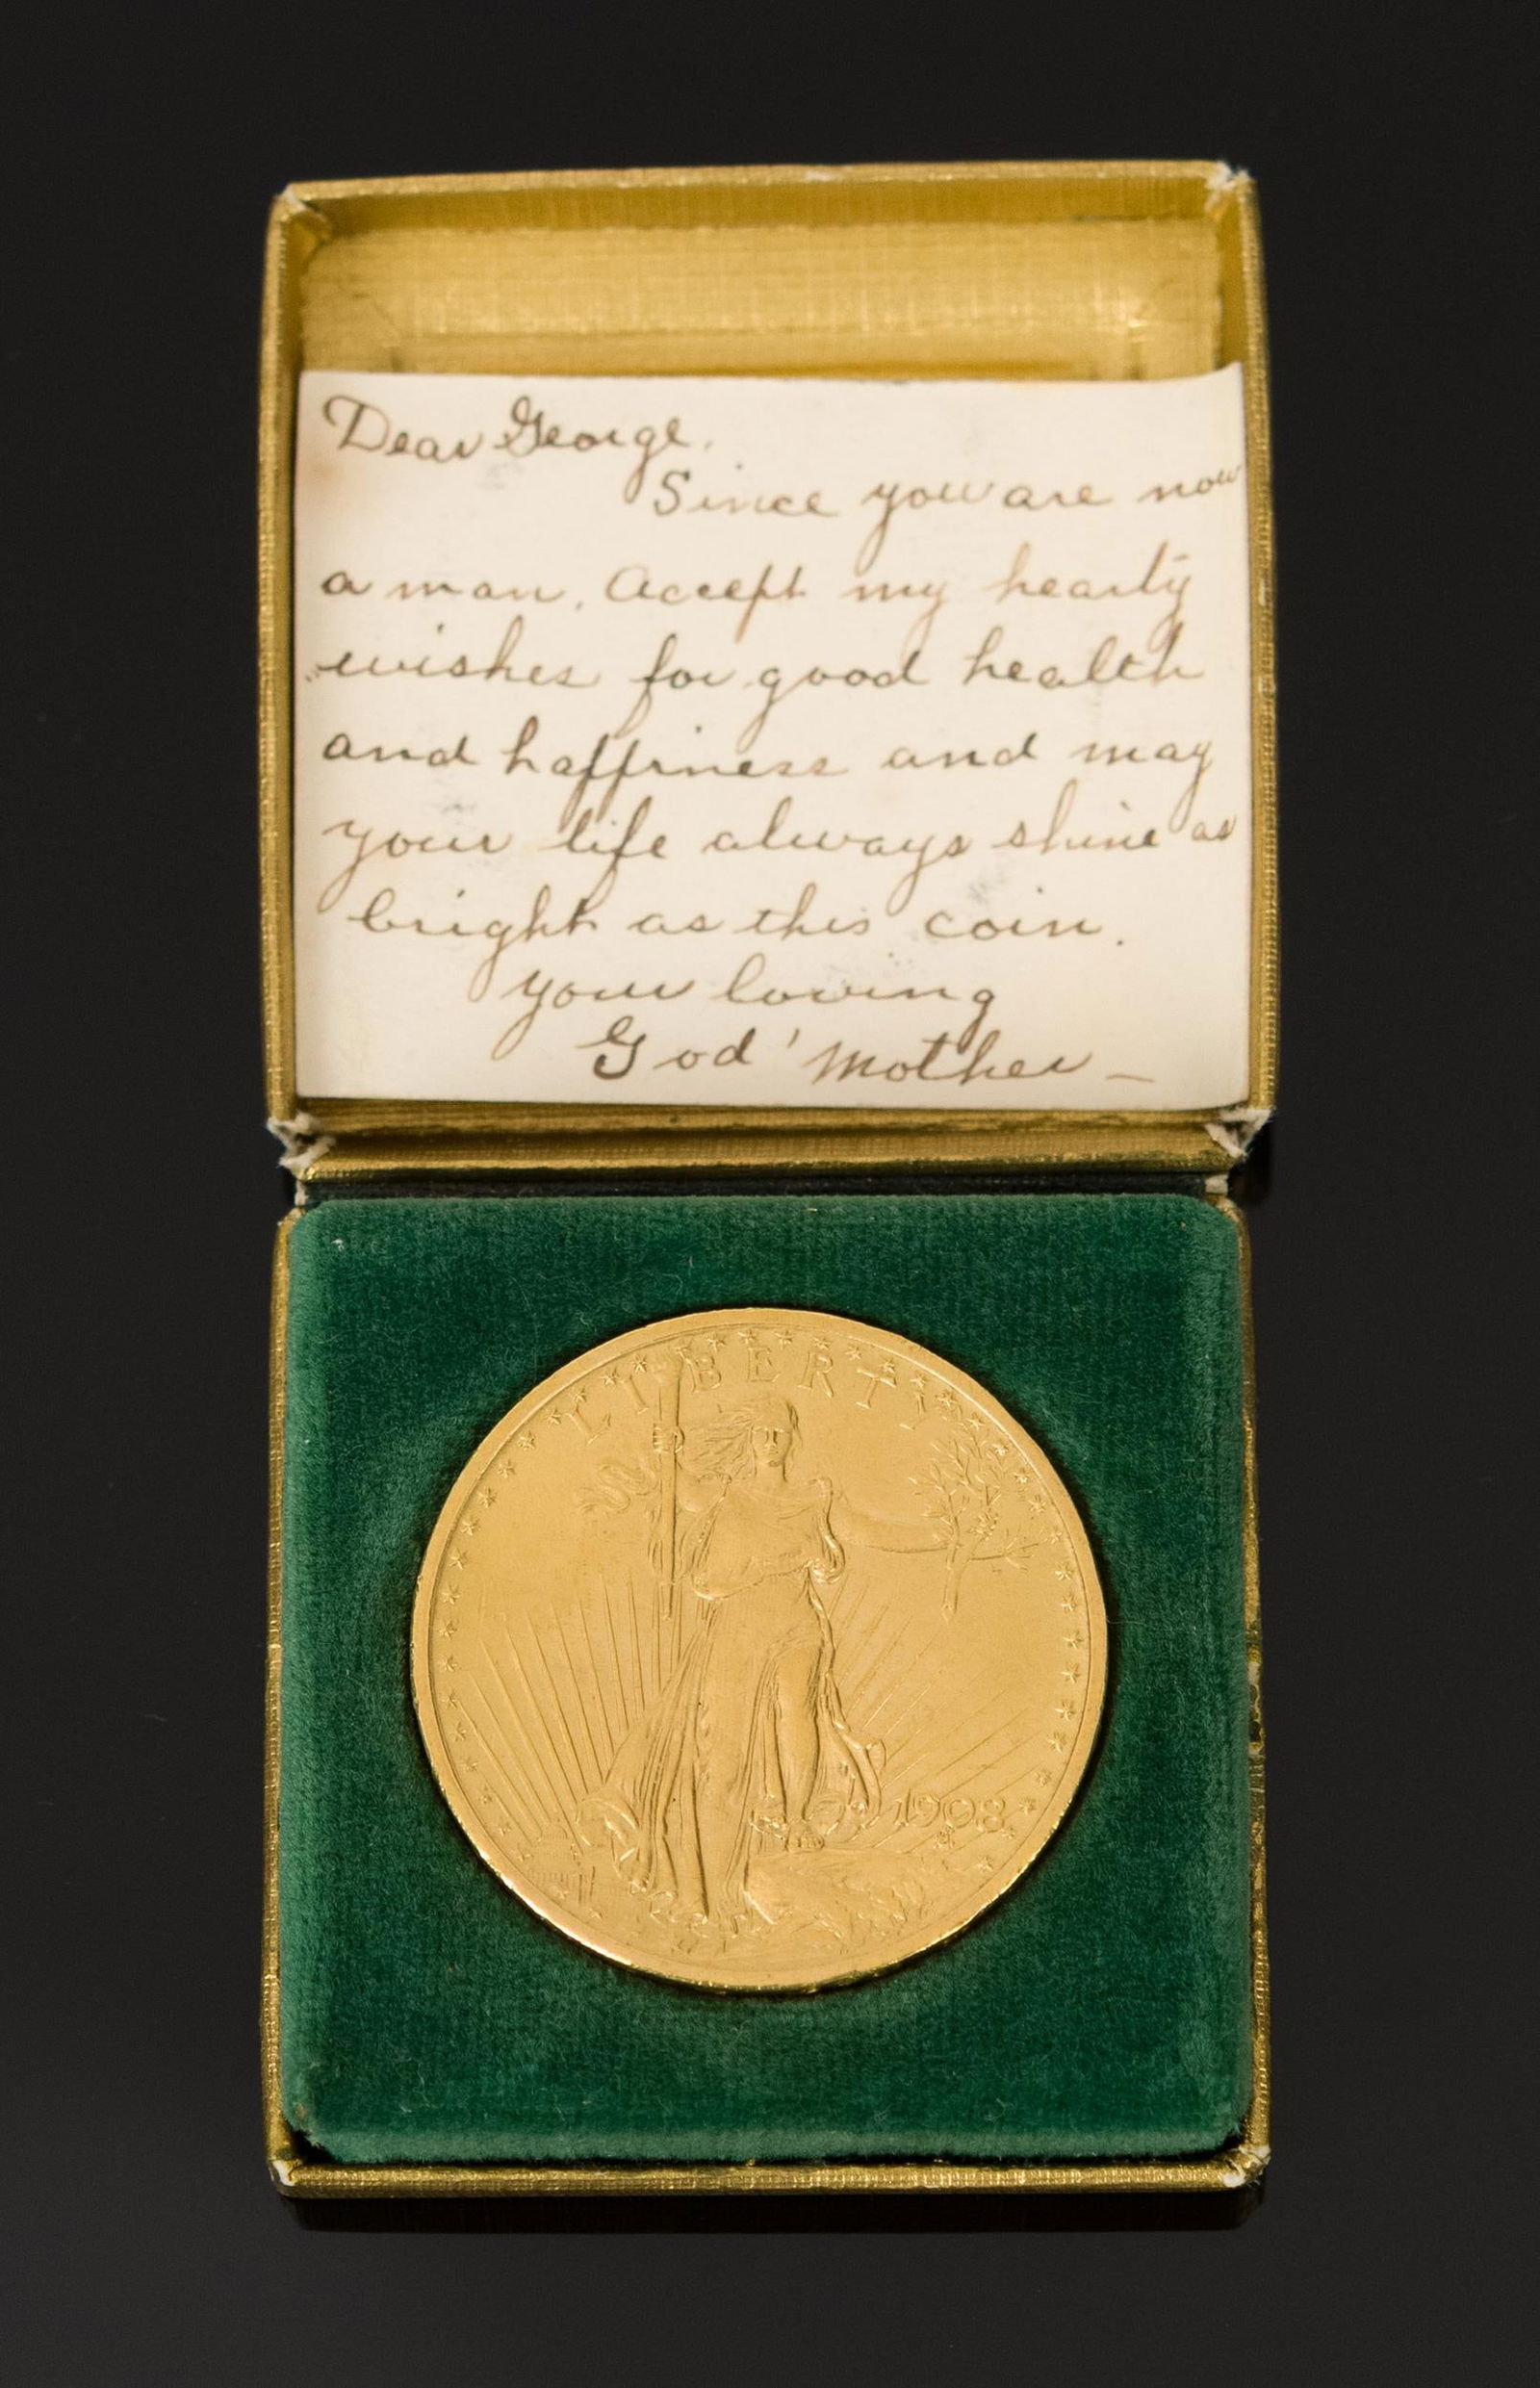 Dear George.
Since you are now
a man, accept my hearty
wishes for good health
and happiness and may
your life always shine as
bright as this coin.
your loving
God'mother —
LIBERTY
1908